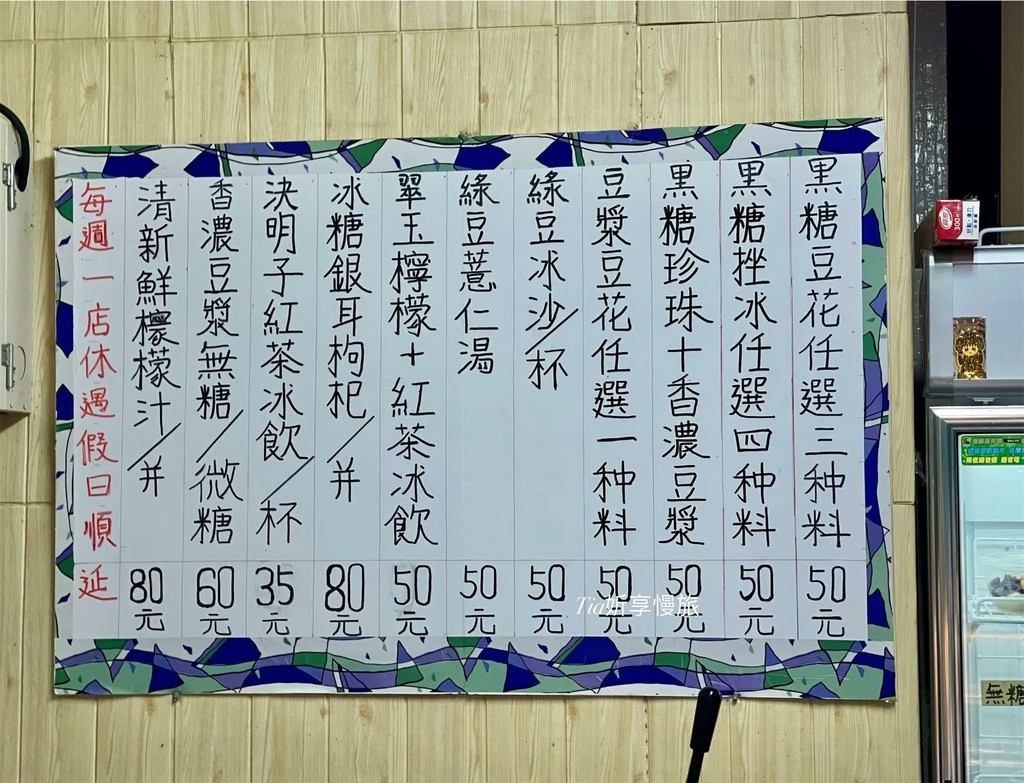 黑糖豆花任選三种料 50元
黑糖挫冰任選四种料 50元
黑糖珍珠+香濃豆漿 50元
豆漿豆花任選一种料 50元
綠豆冰沙/杯 50元
綠豆薏仁湯 50元
翠玉檸檬+紅茶冰飲 50元
冰糖銀耳枸杞/并 80元
決明子紅茶冰飲/杯 35元
香濃豆漿無糖/微糖 60元
清新鮮檸檬汁/并 80元
每週一店休遇假日順延
Tia妡享慢旅
300+
無糖